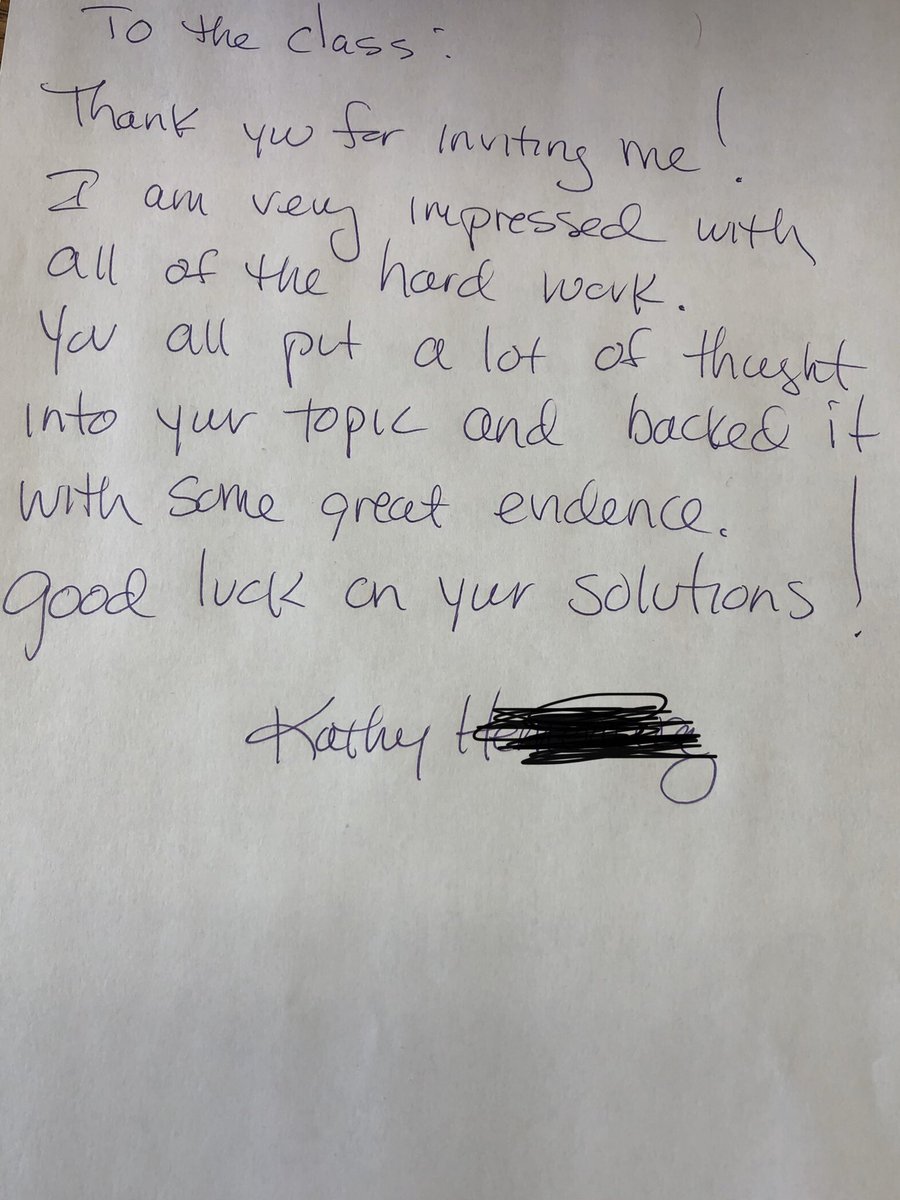 To the class:
Thank you for inviting me!
I am very impressed with
all of the hard work.
You all put a lot of thought
into your topic and backed it
with some great evidence.
good luck on your solutions!
Kathy